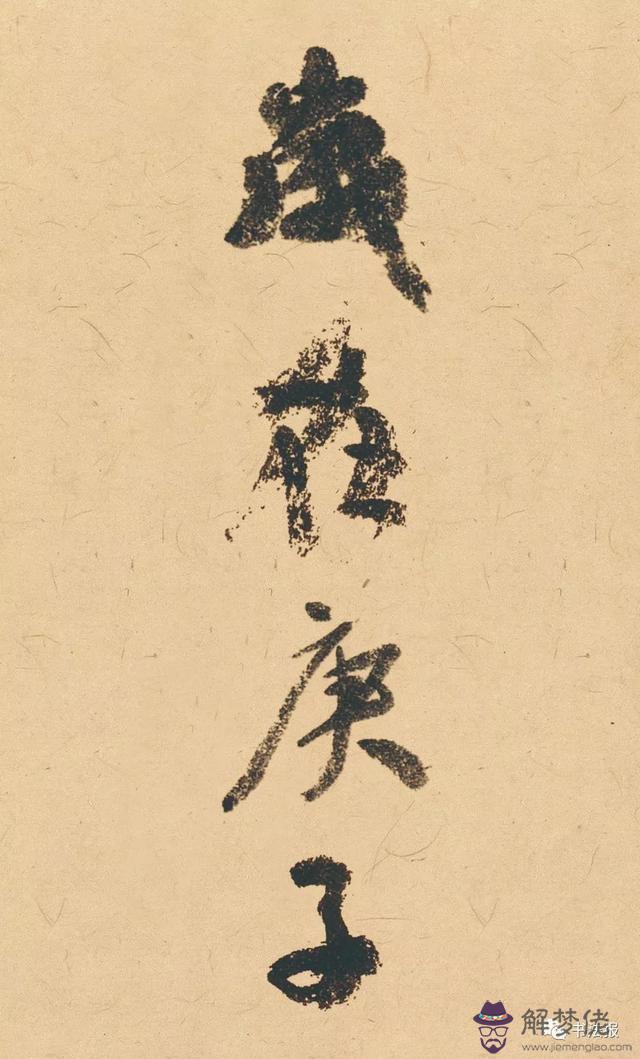 歲在庚子
书法报
解梦佬
www.jiemenglao.com